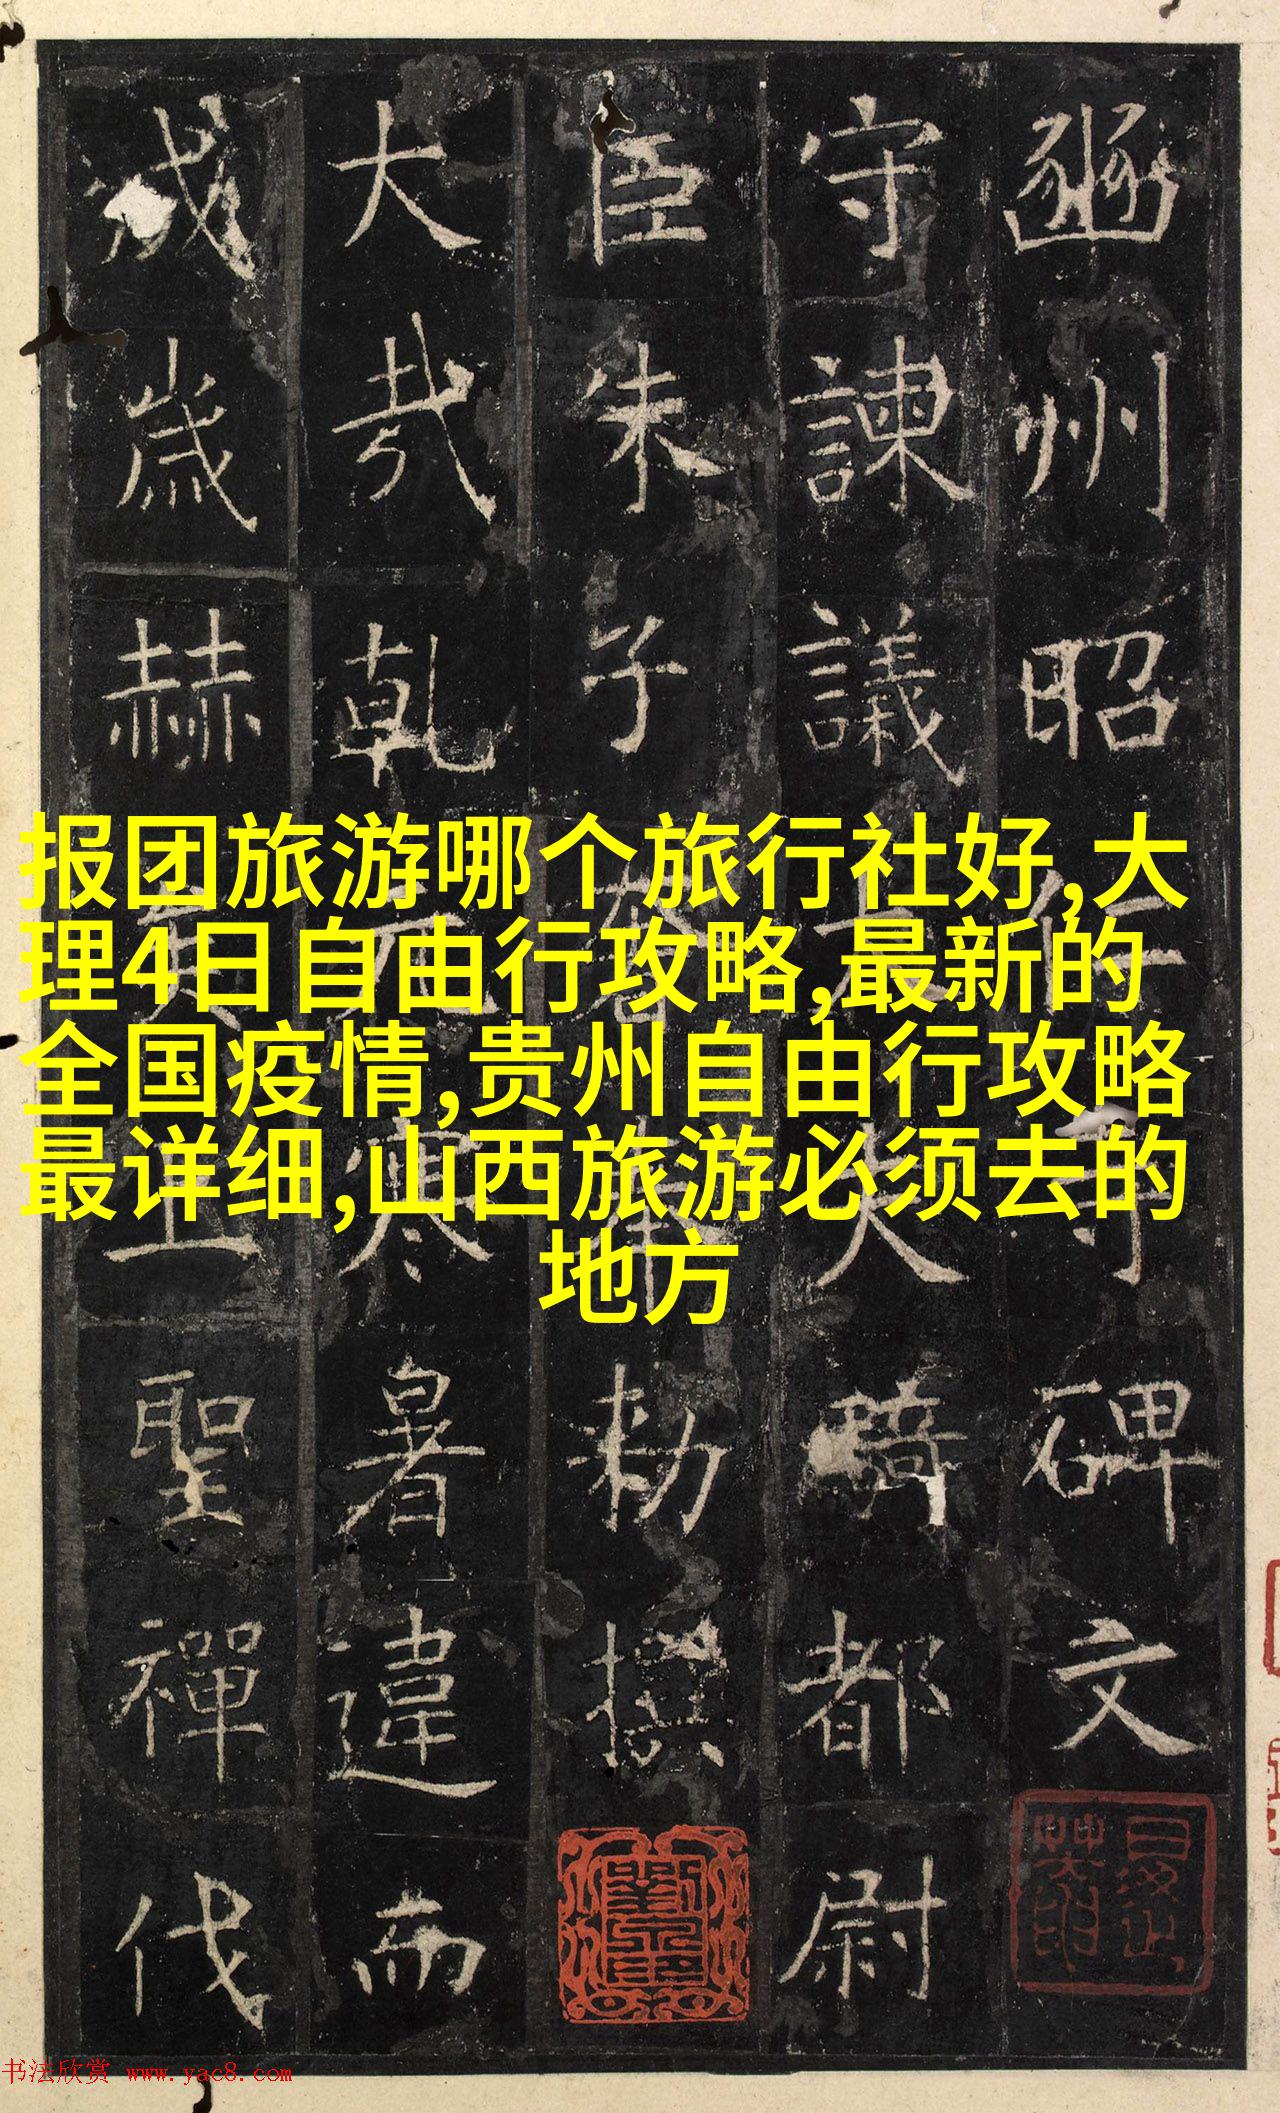 豳州昭仁寺碑文
守諫議大夫騎都尉
臣朱子奢奉勅撰
大哉乾元寒暑違而
成歲赫聖禪代
报团旅游哪个旅行社好,大
理4日自由行攻略,最新的
全国疫情,贵州自由行攻略
最详细,山西旅游必须去的
地方
书法欣赏 www.yac8.com